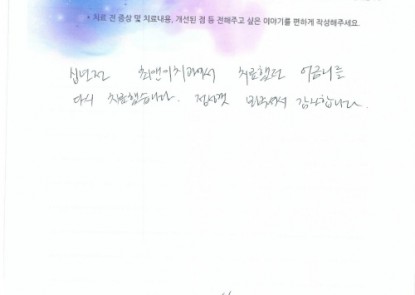 * 치료 전 증상 및 치료내용, 개선된 점 등 전해주고 싶은 이야기를 편하게 작성해주세요.
십년전 최앤이치과에서 치료했던 어금니를
다시 치료했습니다. 정성껏 봐주셔서 감사합니다.